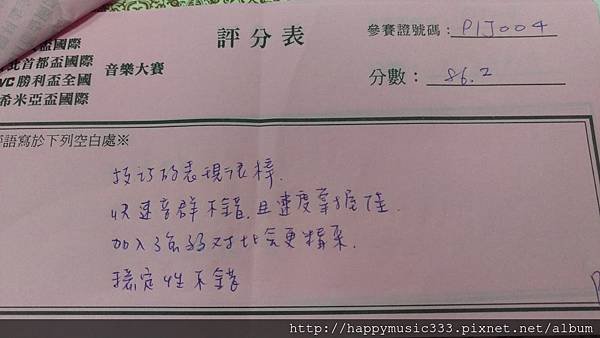 盃國際
評分表
參賽證號碼：P1J004
北首都盃國際
音樂大賽
VC勝利盃全國
分數：86.2
希米亞盃國際
評語寫於下列空白處※
技巧的表現很棒.
快速音群不錯,且速度掌握佳.
加入強弱對比會更精采.
穩定性不錯
http://happymusic333.pixnet.net/album